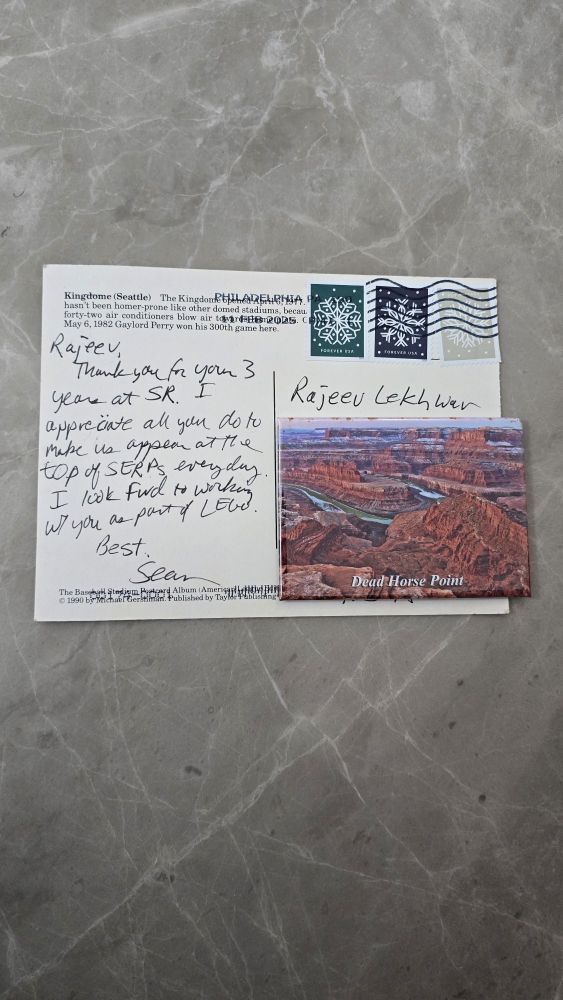 Kingdome (Seattle) The Kingdome opened April 6, 1977.
hasn't been homer-prone like other domed stadiums, becau
forty-two air conditioners blow air
May 6, 1982 Gaylord Perry won his 300th game here.
PHILADELPHIA P
11 FEB 2025
FOREVER USA
FOREVER USA
Rajeev,
Thank you for your 3
years at SR. I
appreciate all you do to
make us appear at the
top of SERPs everyday.
I look fwd to working
w/ you as part of LEGO.
Best.
Sean
Rajeev Lekhwar
Dead Horse Point
The Baseball Stadium Postcard Album
© 1990 by Michael Gershman. Published by Taylor Publishing